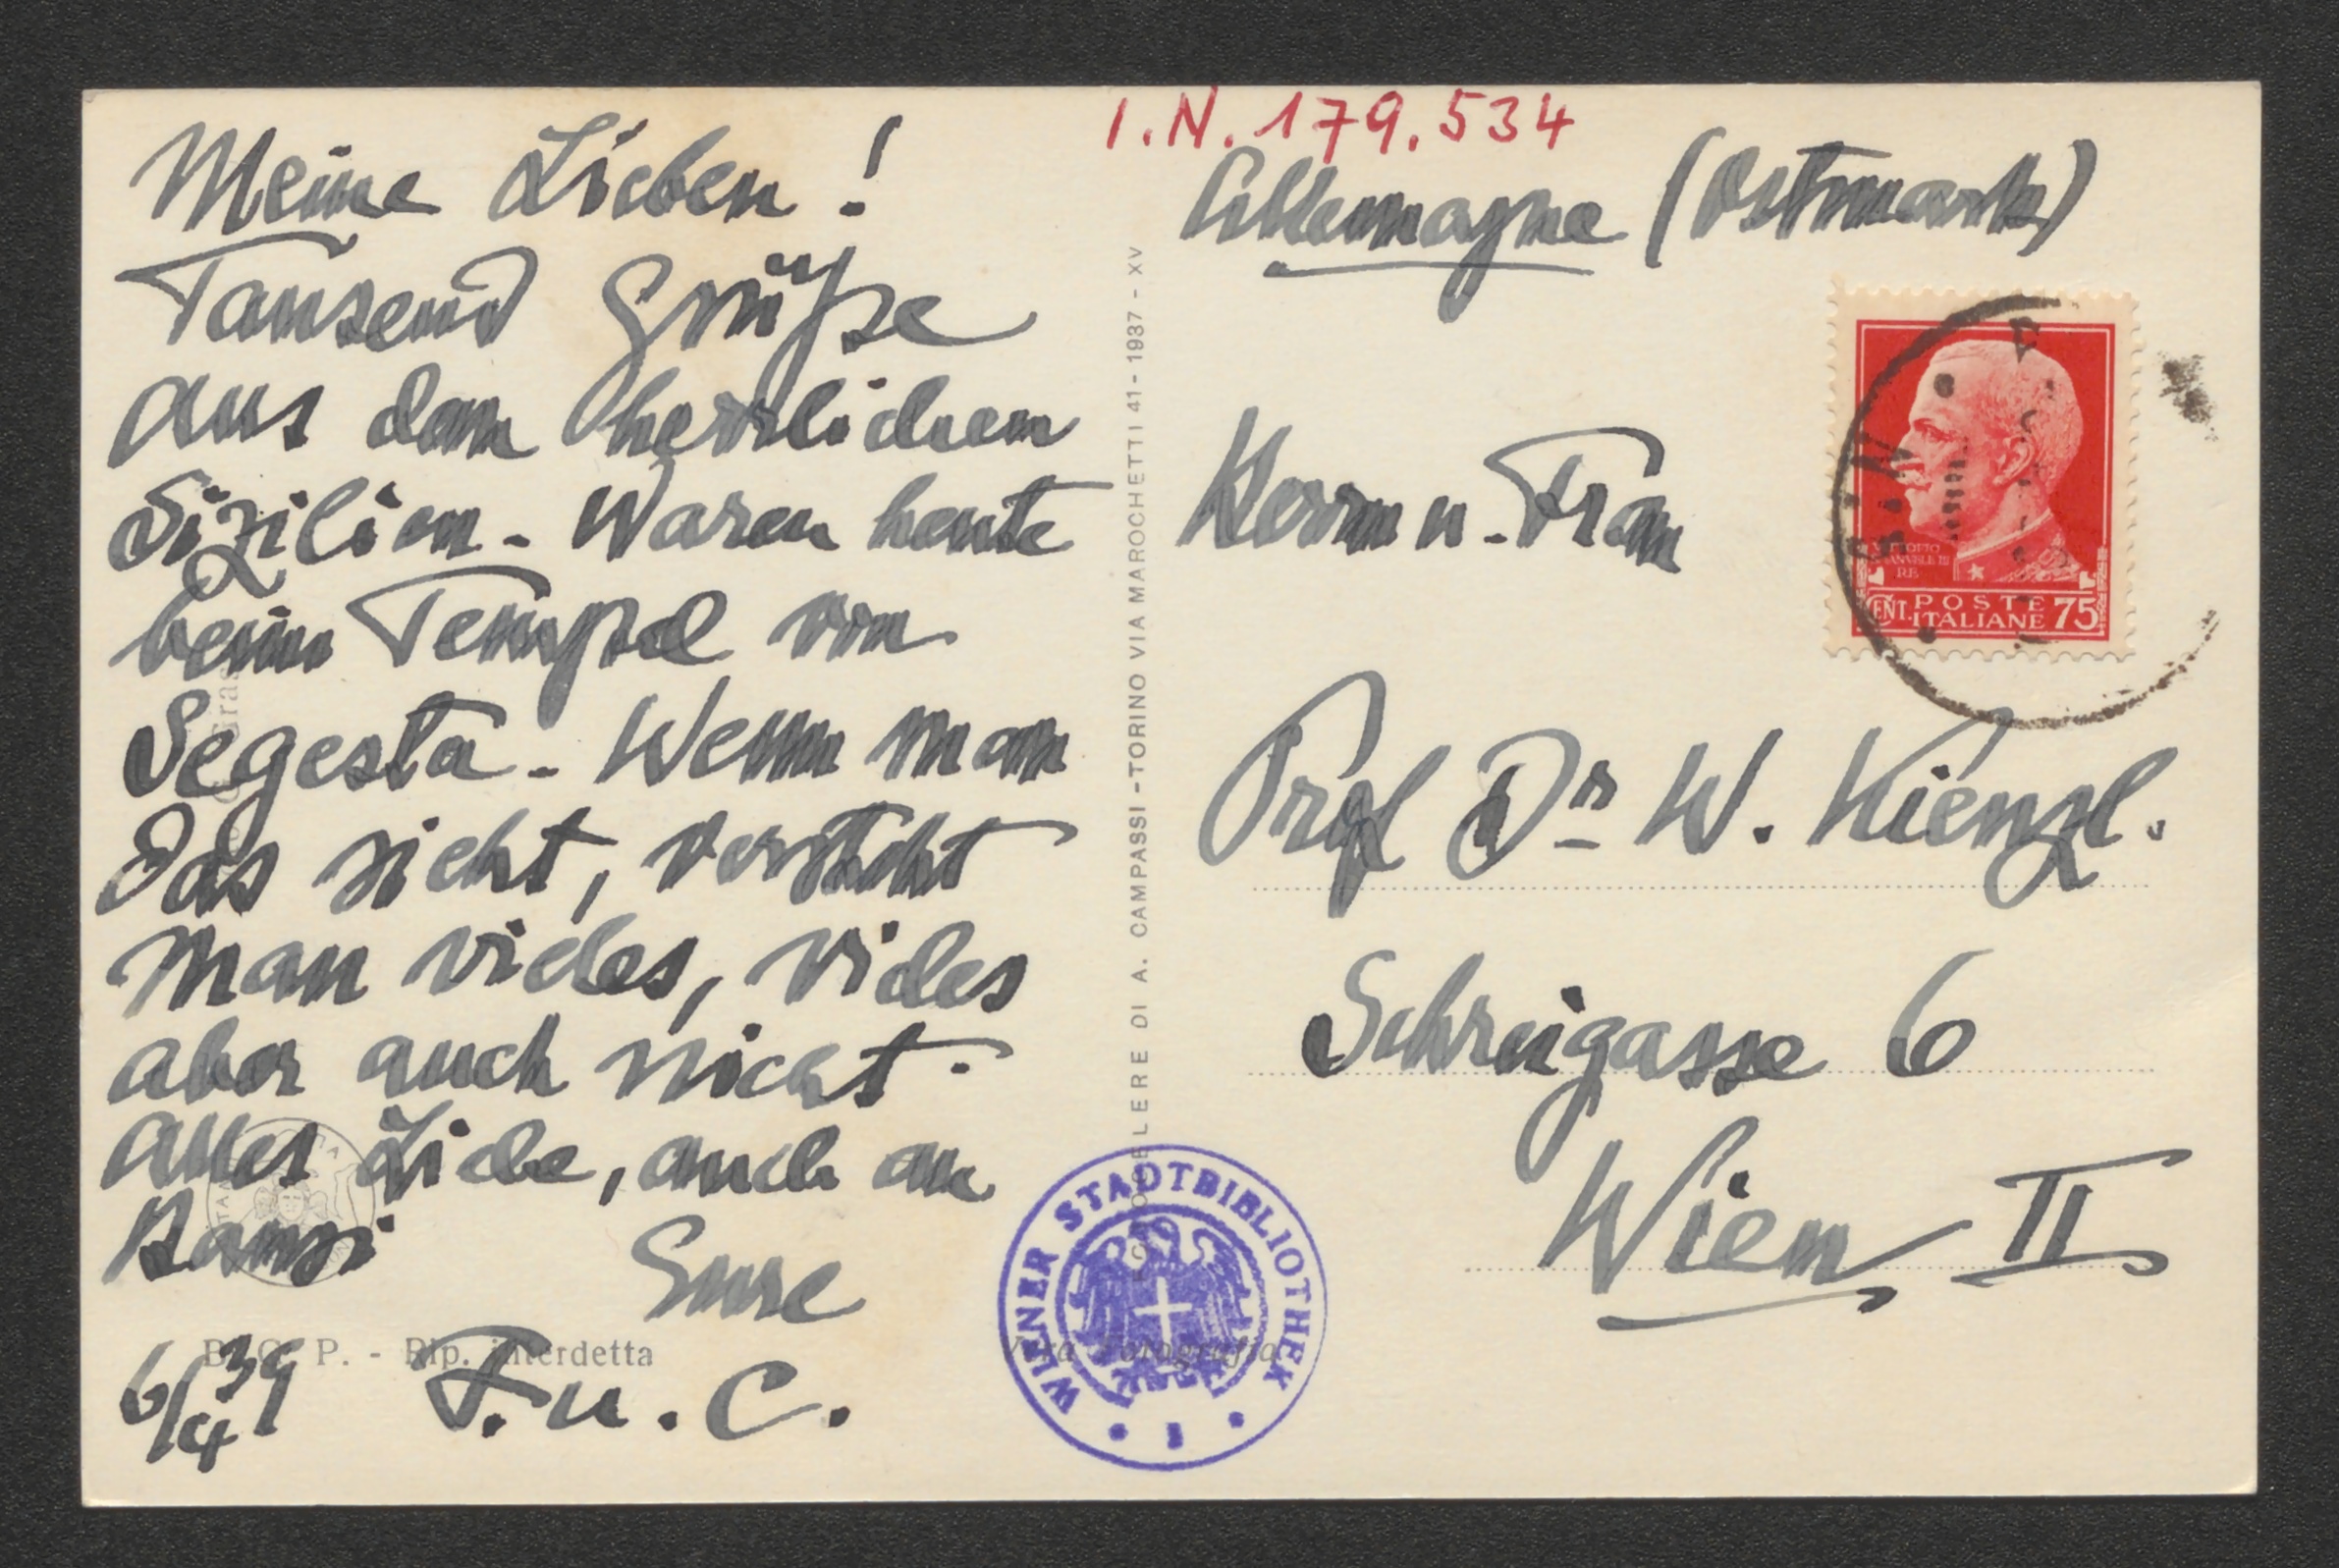 Meine Lieben!
Tausend Grüße
aus dem herrlichen
Sizilien. Waren heute
beim Tempel von
Segesta. Wenn man
das sieht, versteht
man vieles, vieles
aber auch nicht.
Alles Liebe, auch an
Eure
6/4 39 F. u. C.
B. C. P. - Rip. interdetta
Vera Fotografia
DI A. CAMPASSI - TORINO VIA MAROCHETTI 41 - 1937 - XV
I.N. 179.534
Allemagne (Ostmark)
Herrn u. Frau
Prof Dr W. Kienzl.
Schreigasse 6
Wien II
VITTORIO EMANUELE III
RE
CENT. POSTE ITALIANE 75
WIENER STADTBIBLIOTHEK